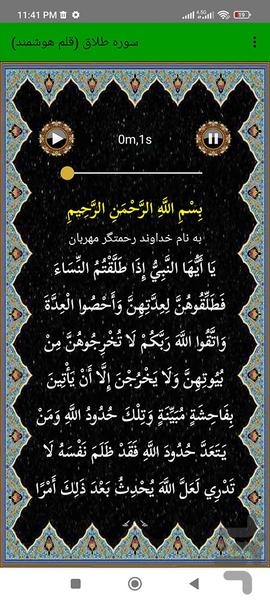 11:41 PM
4.5G
19
سوره طلاق (قلم هوشمند)
0m,1s
بِسْمِ اللَّهِ الرَّحْمَنِ الرَّحِيمِ
به نام خداوند رحمتگر مهربان
يَا أَيُّهَا النَّبِيُّ إِذَا طَلَّقْتُمُ النِّسَاءَ
فَطَلِّقُوهُنَّ لِعِدَّتِهِنَّ وَأَحْصُوا الْعِدَّةَ
وَاتَّقُوا اللَّهَ رَبَّكُمْ لَا تُخْرِجُوهُنَّ مِنْ
بُيُوتِهِنَّ وَلَا يَخْرُجْنَ إِلَّا أَنْ يَأْتِينَ
بِفَاحِشَةٍ مُبَيِّنَةٍ وَتِلْكَ حُدُودُ اللَّهِ وَمَنْ
يَتَعَدَّ حُدُودَ اللَّهِ فَقَدْ ظَلَمَ نَفْسَهُ لَا
تَدْرِي لَعَلَّ اللَّهَ يُحْدِثُ بَعْدَ ذَلِكَ أَمْرًا